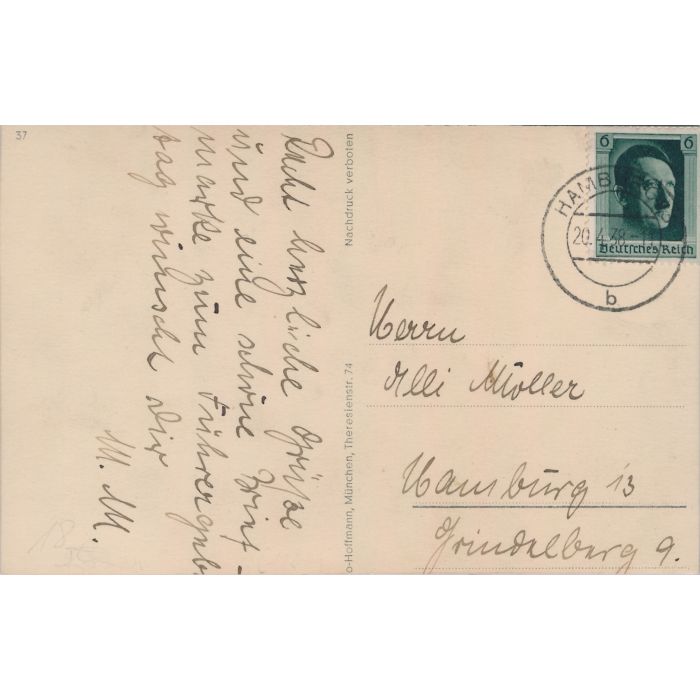 37
Recht herzliche Grüße
und eine schöne Brief-
marke zum Führergeb.
tag wünscht Dir
M. M.
Nachdruck verboten
o-Hoffmann, München, Theresienstr. 74
6 6
Deutsches Reich
HAMB
20.4.38
b
Herrn
Alli Müller
Hamburg 13
Grindelberg 9.